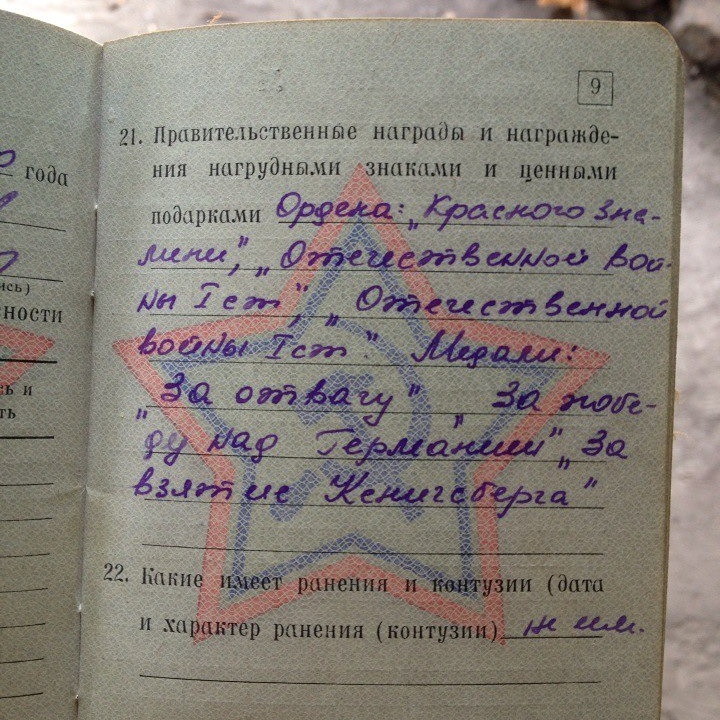 9
21. Правительственные награды и награжде-
ния нагрудными знаками и ценными
подарками Ордена: „Красного Зна-
мени", „Отечественной Вой-
ны I ст", „Отечественной
войны I ст." Медали:
„За отвагу" „За побе-
ду над Германией" „За
взятие Кенигсберга"
22. Какие имеет ранения и контузии (дата
и характер ранения (контузии) не им.
года
ись)
ности
ь и
ть